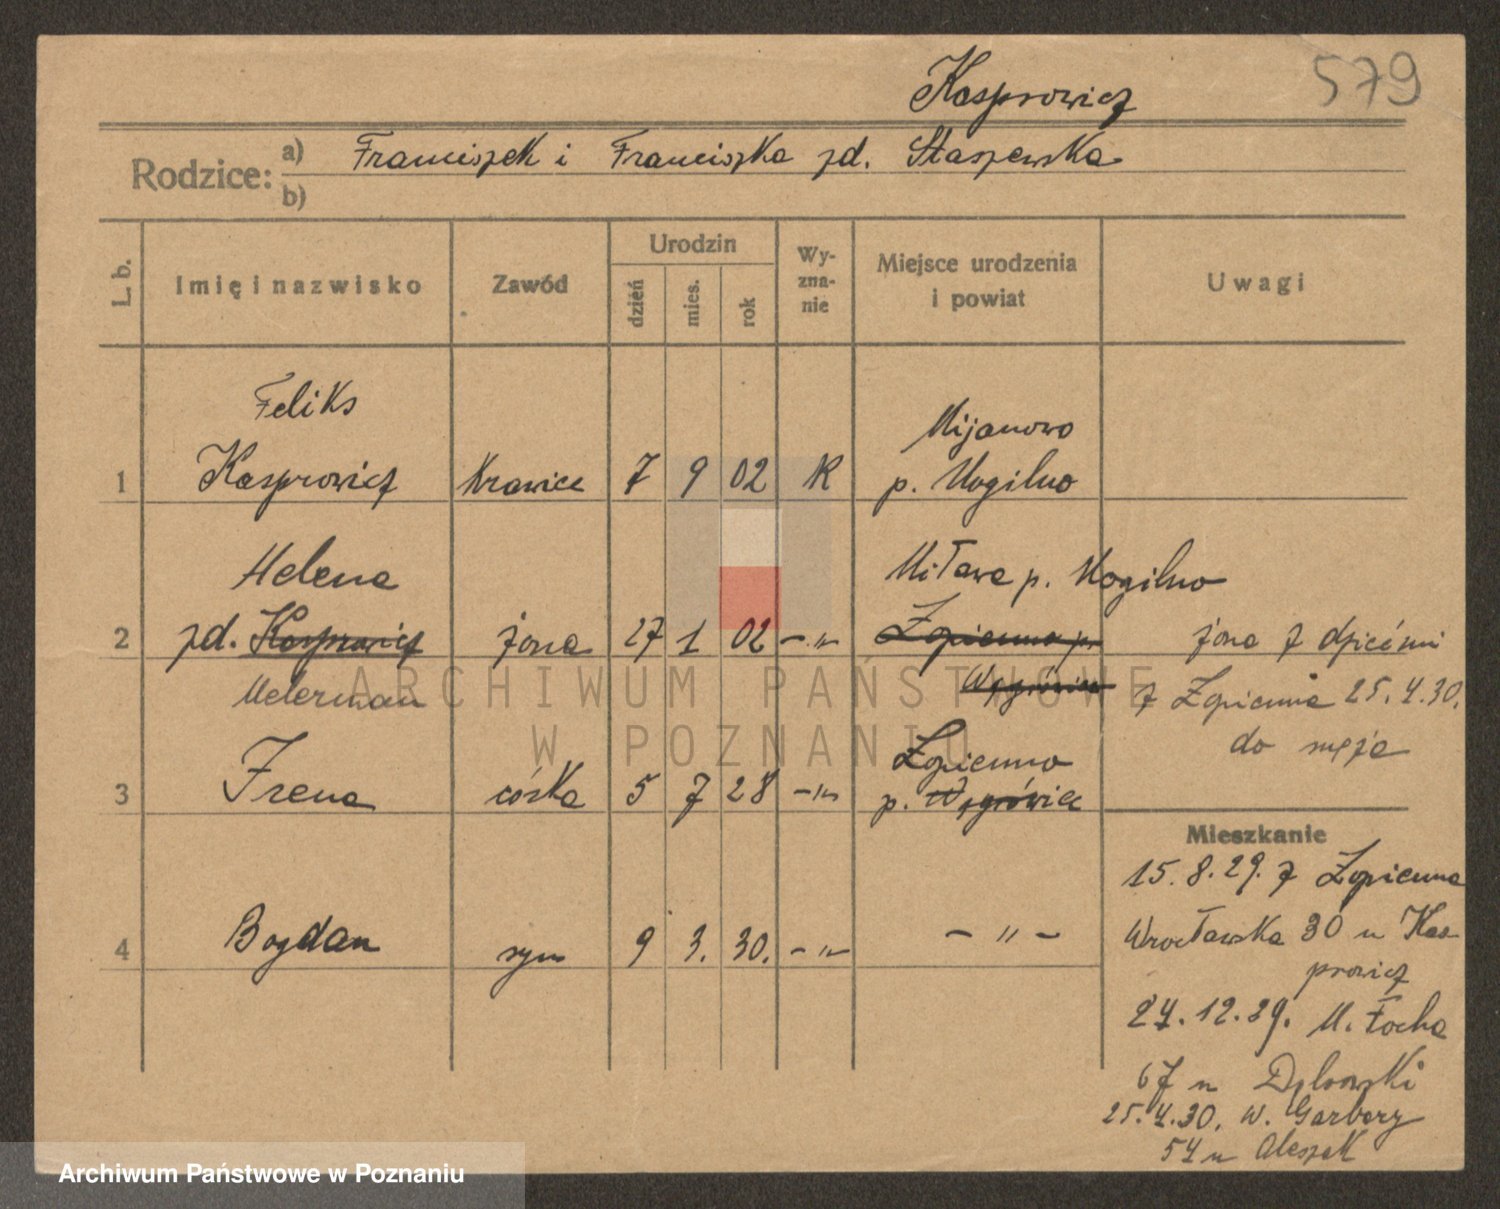 Kasprowicz
579
Rodzice: a) Franciszek i Franciszka zd. Staszewska
b)
L. b.
Imię i nazwisko
Zawód
Urodzin
dzień
mies.
rok
Wy-
zna-
nie
Miejsce urodzenia
i powiat
Uwagi
Feliks
Mijanowo
1 Kasprowicz Krawiec 7 9 02 R p. Mogilno
Helena Miława p. Mogilno
2 zd. Kasprowicz żona 27 1 02 -"- Łopienno p. żona z dziećmi
Meterman Wągrówiec z Łopienna 25.4.30.
do męża
Irena Łopienno
3 córka 5 7 28 -"- p. Wągrówiec
Mieszkanie
15.8.29. z Łopienna
4 Bogdan syn 9 3. 30. -"- - " - Wrocławska 30 u Kas-
prowicz
27.12.29. M. Focha
67 u Dąbrowski
25.4.30. W. Garbary
54 u
ARCHIWUM PAŃSTWOWE
W POZNANIU
Archiwum Państwowe w Poznaniu